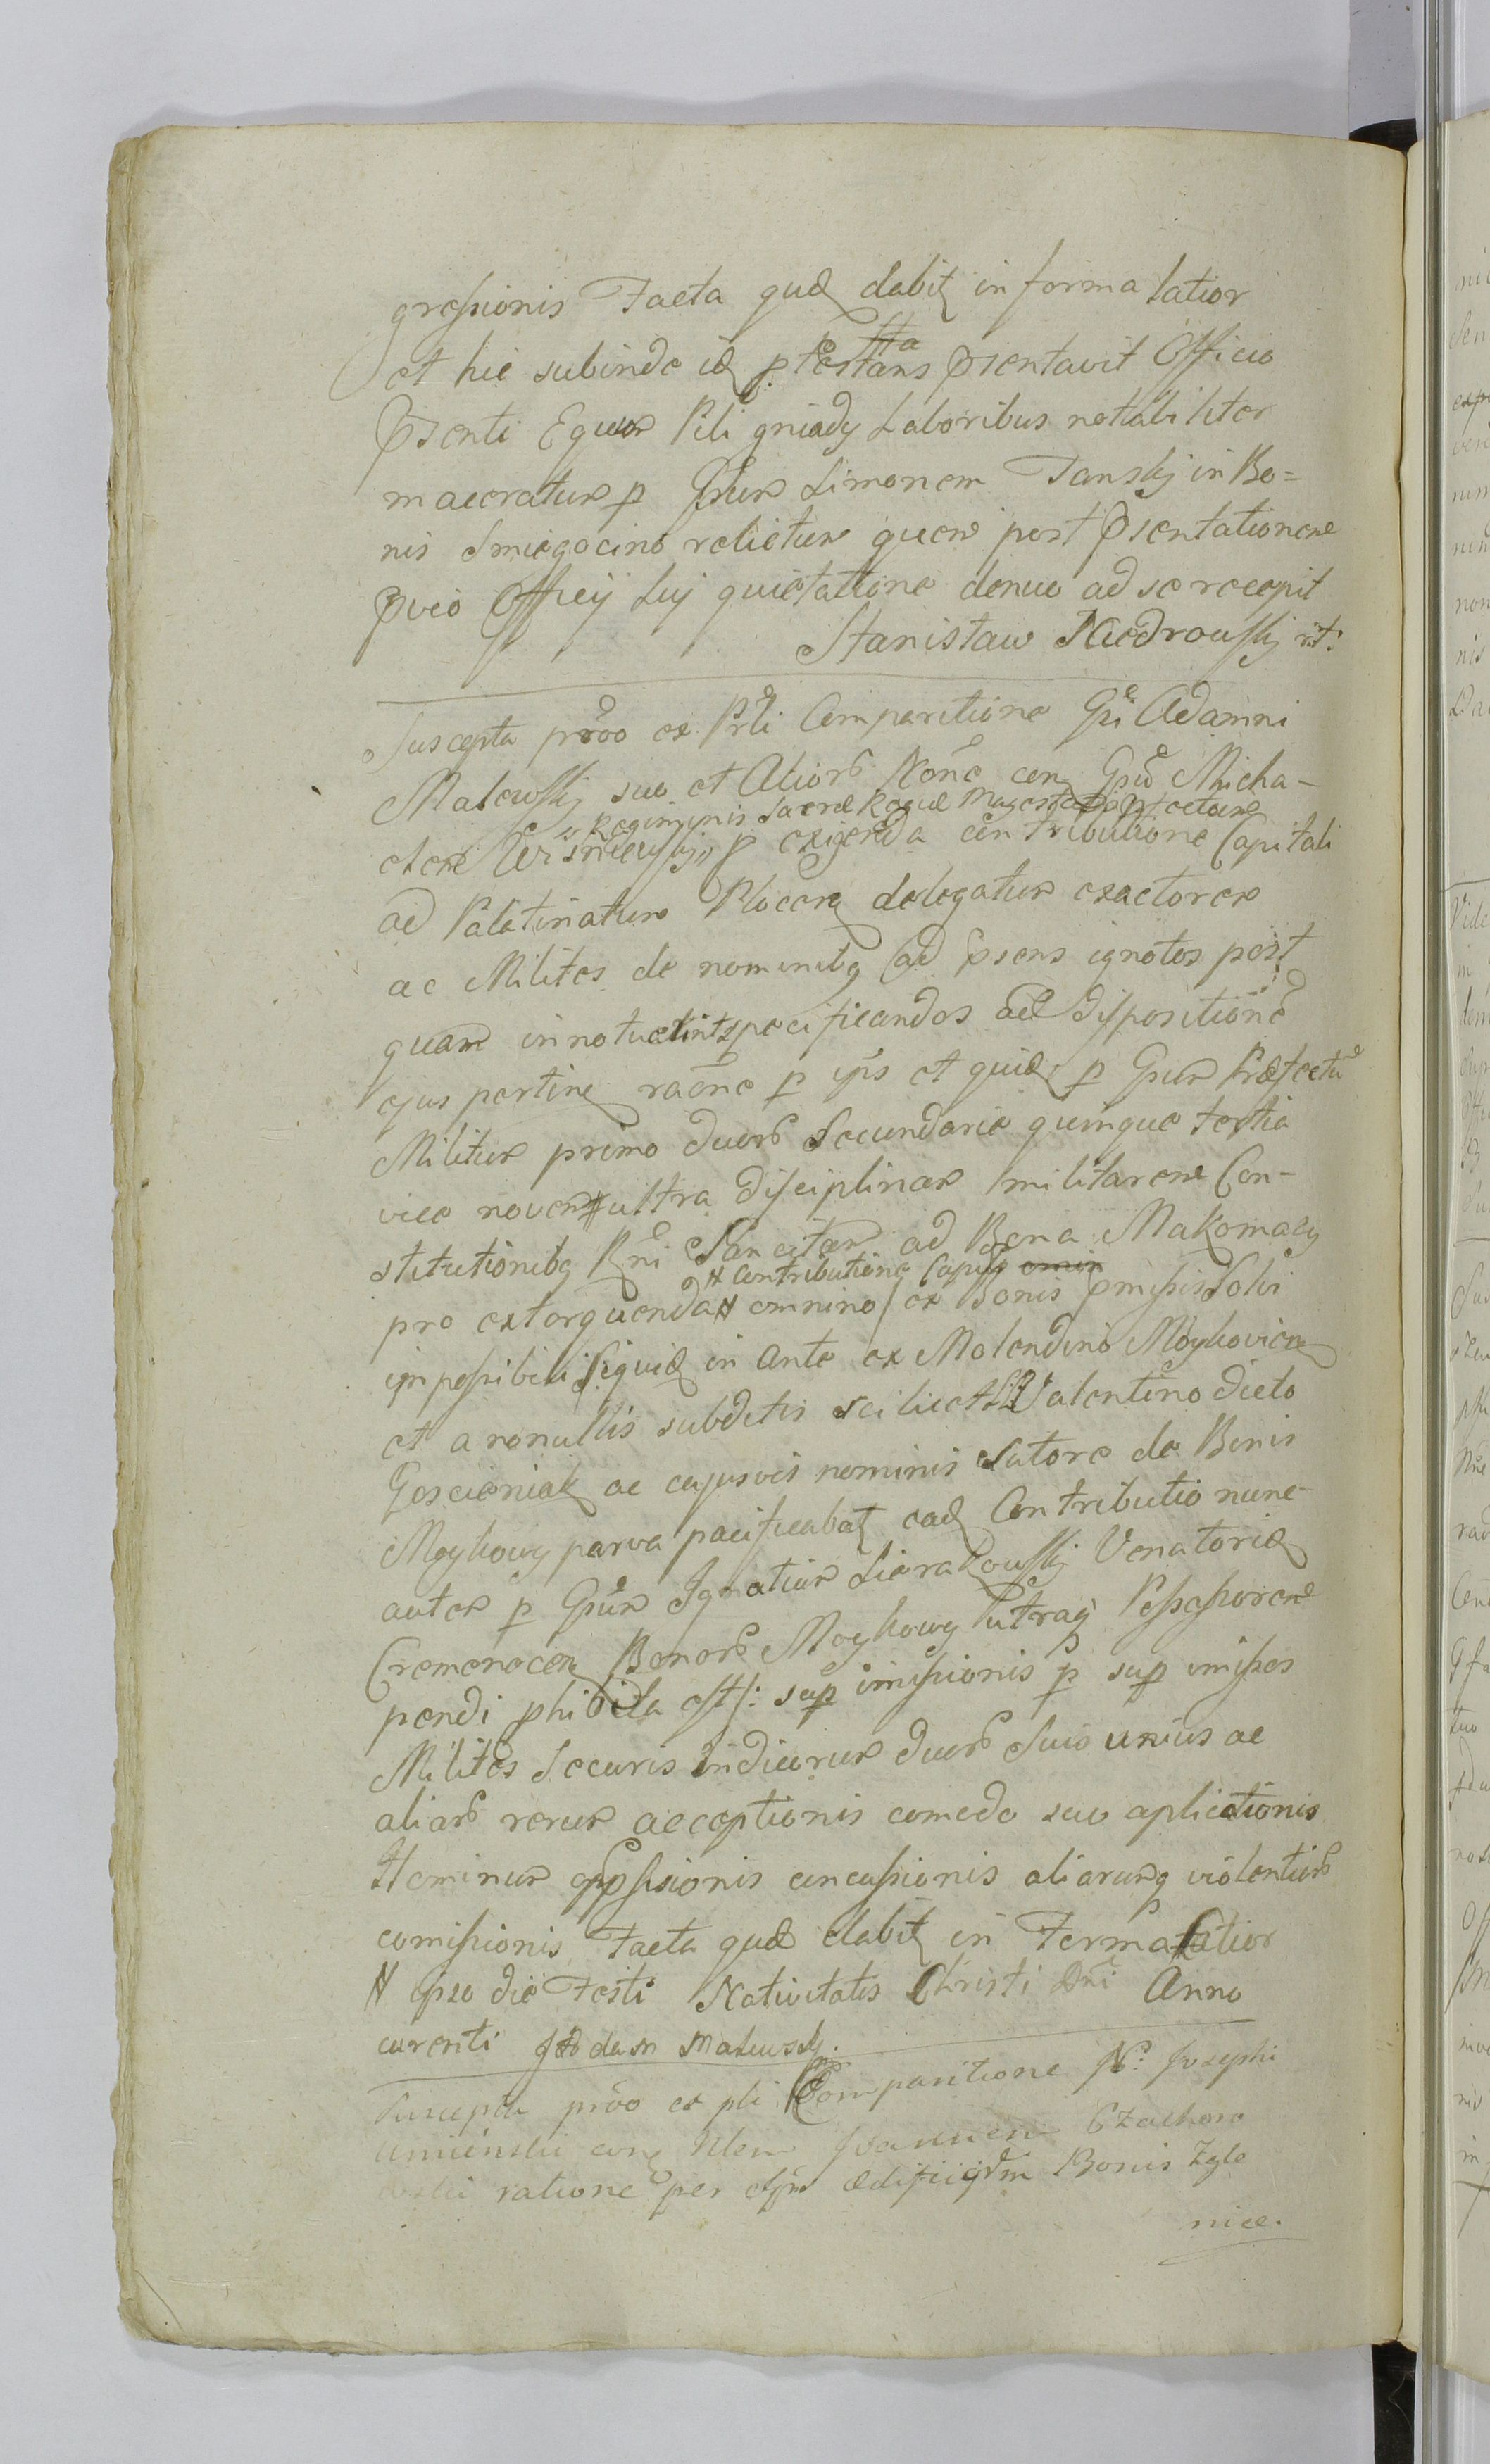 gressionis Facta quæ dabitq in forma latior
et hic subinde idq ptestans Psentavit Officio
Psenti Equum Pili gniady Laboribus notabiliter
maceratum p Gsum Simonem Tanskj in Bo=
nis Smiegocino relictum quem post Psentationem
Pvio Officij Sui quietatione denuo ad se recepit
Stanisław Niedrowskj
Suscepta prōo ex Prli Comparitione Gsi Adamni
Malewskj suo et Alior̄ Noñe con Gsū Micha-
elem Wisniewskj p exigenda Contributione Capitali
Regiminis Sacræ Regiæ Maɡestatis
ad Palatinatum Plocenq delegatum exactorem
ac Milites de nominibq ad Psens ignotos post
quam innotuerint specificandos ad dispositionē
ejus pertinq raōne p ips et quidq p Gsum Præfectū
Militum primo duor̄ Secundario quinque tertia
vice novem ultra disciplinam militarem Con-
stitutionibq Rni Sancitam ad Bona Makomacy
pro extorquenda # omnino ex Bonis Pmissis Solvi
# Contributione
impossibili siquidq in ante ex Molendino Moykovienq
et a nonullis subditis scilicet Valentino dicto
Goscieniak ac cujusvis nominis Sutore de Bonis
Moykowy parva pacificabatq eadq Contributio nunc
autem p Gsum Ignatium Sierakowskj Venatoridq
Cremenecenq Bonor̄ Moykowy utraq Possessorem
pendi phibita est: sup imissionis p sup imissos
Milites Securis Indicarum duor̄ Suis unius ac
aliar̄ rerum acceptionis comedo suo aplicationis
Hominum oppssionis concussionis aliarumq violentiar̄
comissionis Facta quæ dabitq in Forma Latior
# ipso die Festi Nativitatis Christi Dni Anno
curenti Adam Malewskj.
Suscepta prōo ex pli Comparitione N: Josephi
Umienski conq Nlem Joannem Czacho
wski ratione per ejm ædificij in Bonis Zgle
nice.